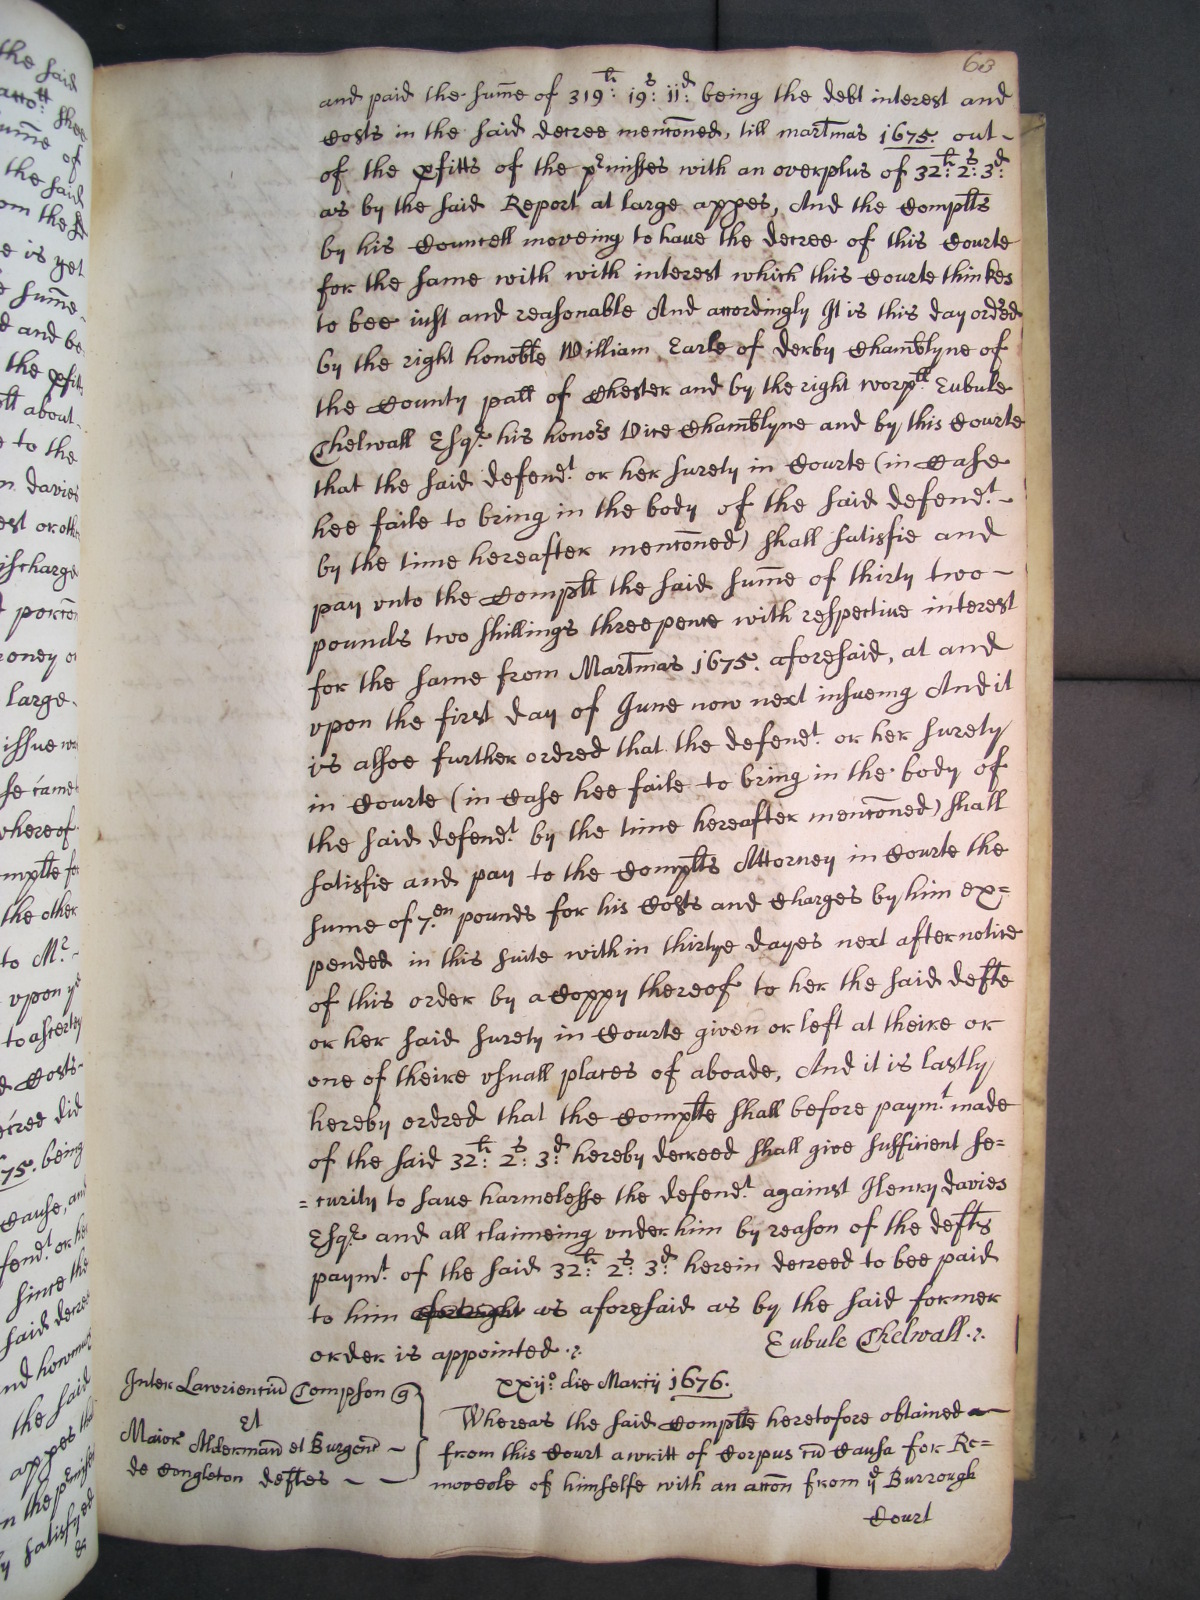 63
and paid the sume of 319li: 19s: 11d: being the debt interest and
Costs in the said decree menconed, till martmas 1675. out-
of the pfitts of the prmisses with an overplus of 32li: 2s: 3d:
as by the said Report at large appes, And the Complts
by his Councell moveing to have the decree of this Courte
for the same with with interest which this Courte thinkes
to bee iust and reasonable And accordingly It is this day ordred
by the right honoble William Earle of derby Chamblyne of
the County pall of Chester and by the right worpll Eubule
Thelwall Esqr his honors Vice Chamblyne and by this Courte
that the said defendt or her surety in Courte (in Case
hee faile to bring in the body of the said defendt-
by the time hereafter menconed) shall satisfie and
pay vnto the Complt the said sume of thirty two-
pounds two shillings threepence with respective interest
for the same from Martmas 1675. aforesaid, at and
vpon the first day of June now next insueing And it
is alsoe further ordred that the defendt or her surety
in Courte (in Case hee faile to bring in the body of
the said defendt by the time hereafter menconed) shall
satisfie and pay to the Complts Attorney in Courte the
sume of 7en pounds for his Costs and Charges by him ex=
pended in this suite within thirtye dayes next after notice
of this order by a Coppy thereof to her the said defte
or her said surety in Courte given or left at theire or
one of theire vsuall places of aboade, And it is lastly
hereby ordred that the Complte shall before paymt made
of the said 32li: 2s: 3d: hereby decreed shall give sufficient se=
=curity to save harmelesse the defendt against Henry davies
Esqr and all claimeing vnder him by reason of the defts
paymt of the said 32li: 2s: 3d: herein decreed to bee paid
to him as aforesaid as by the said former
order is appointed.
Eubule Thelwall.
Inter Lawrencium Compson q
Et
Maior Aldermand et Burgens
de Congleton deftes
xxijo die Marcij 1676.
Whereas the said Complte heretofore obtained
from this Court a writt of Corpus cu Causa for Re=
moveole of himselfe with an accon from ye Burrough
Court
the said
sume of
the said
om the
e is yet
sume
d and be
the pfitts
about
e to the
davies
est or oth
ischarge
porcon
money
large
issue
came
whereof
mplte
the other
to Mr
vpon ye
d Costs
creed did
75. being
Cause, and
fendt or her
since the
said decree
the said
appes
satisfyed